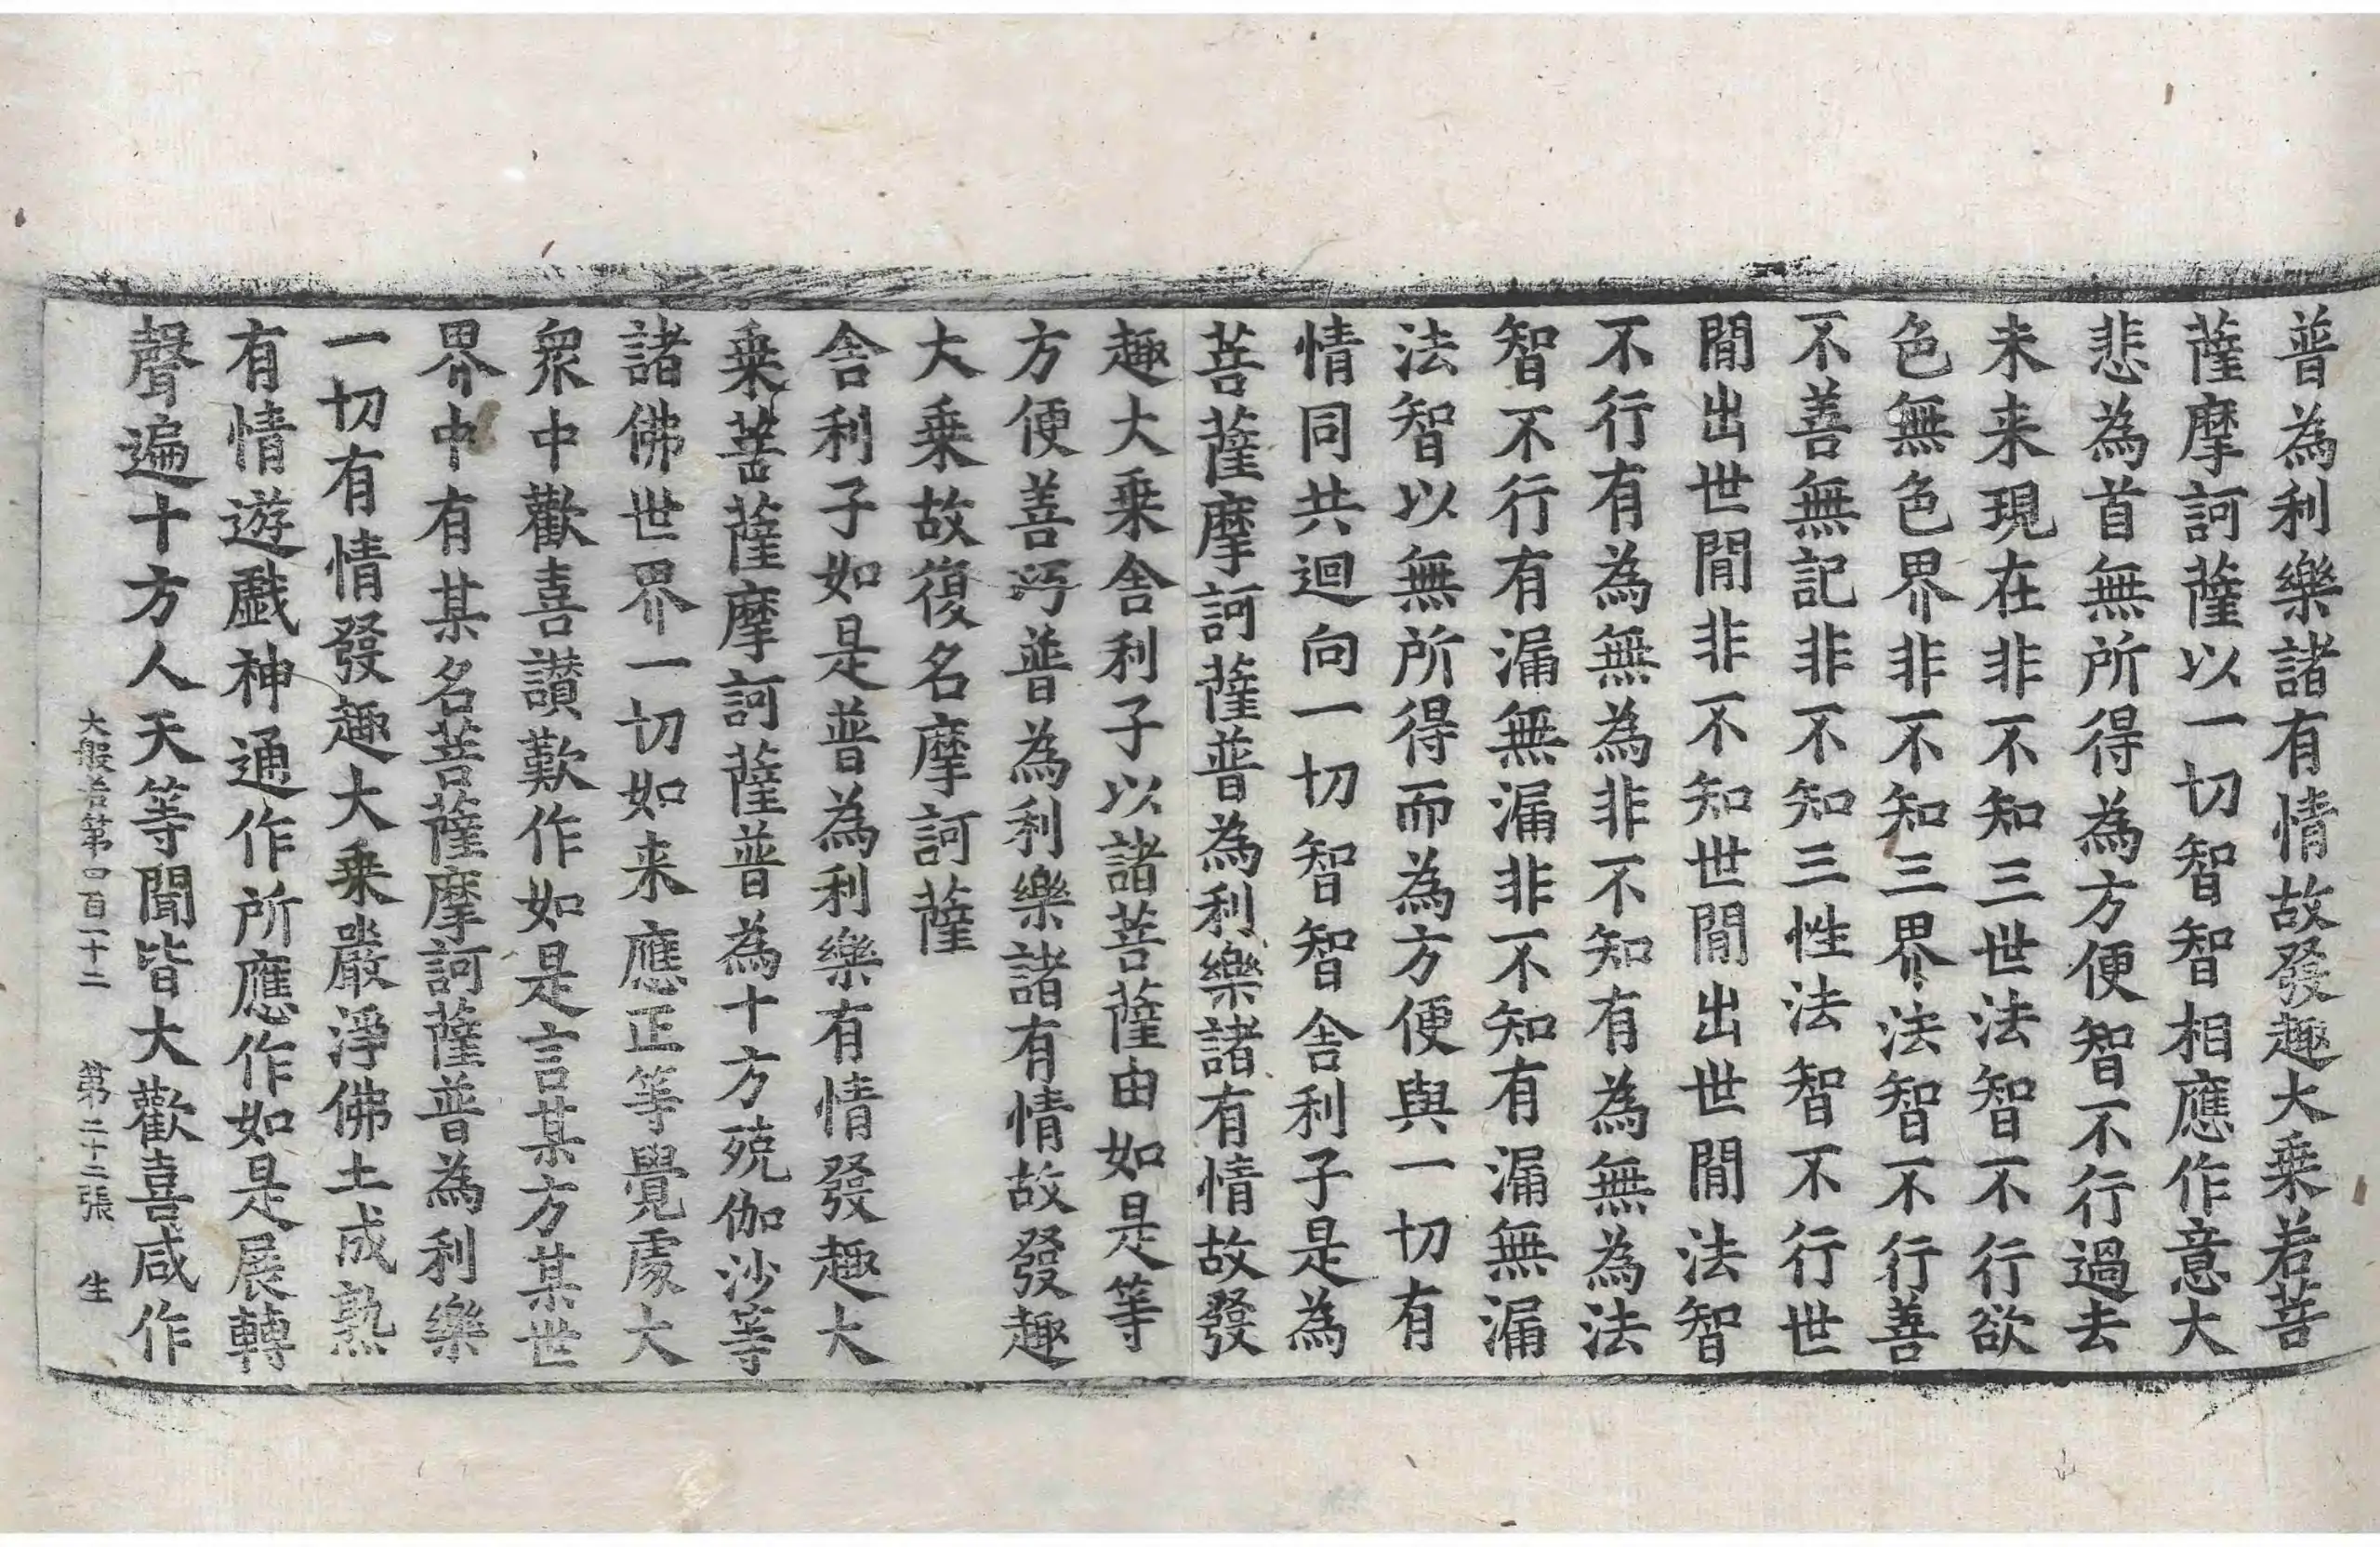 普為利樂諸有情故發趣大乗若菩
薩摩訶薩以一切智智相應作意大
悲為首無所得為方便智不行過去
未来現在非不知三世法智不行欲
色無色界非不知三界法智不行善
不善無記非不知三性法智不行世
閒出世閒非不知世閒出世閒法智
不行有為無為非不知有為無為法
智不行有漏無漏非不知有漏無漏
法智以無所得而為方便與一切有
情同共迴向一切智智舎利子是為
菩薩摩訶薩普為利樂諸有情故發
趣大乗舎利子以諸菩薩由如是等
方便善巧普為利樂諸有情故發趣
大乗故復名摩訶薩
舎利子如是普為利樂有情發趣大
乗菩薩摩訶薩普為十方殑伽沙等
諸佛世界一切如来應正等覺處大
衆中歡喜讃歎作如是言某方某世
界中有某名菩薩摩訶薩普為利樂
一切有情發趣大乗嚴淨佛土成熟
有情遊戲神通作所應作如是展轉
聲遍十方人天等聞皆大歡喜咸作
大般若第四百一十二 第二十二張 生